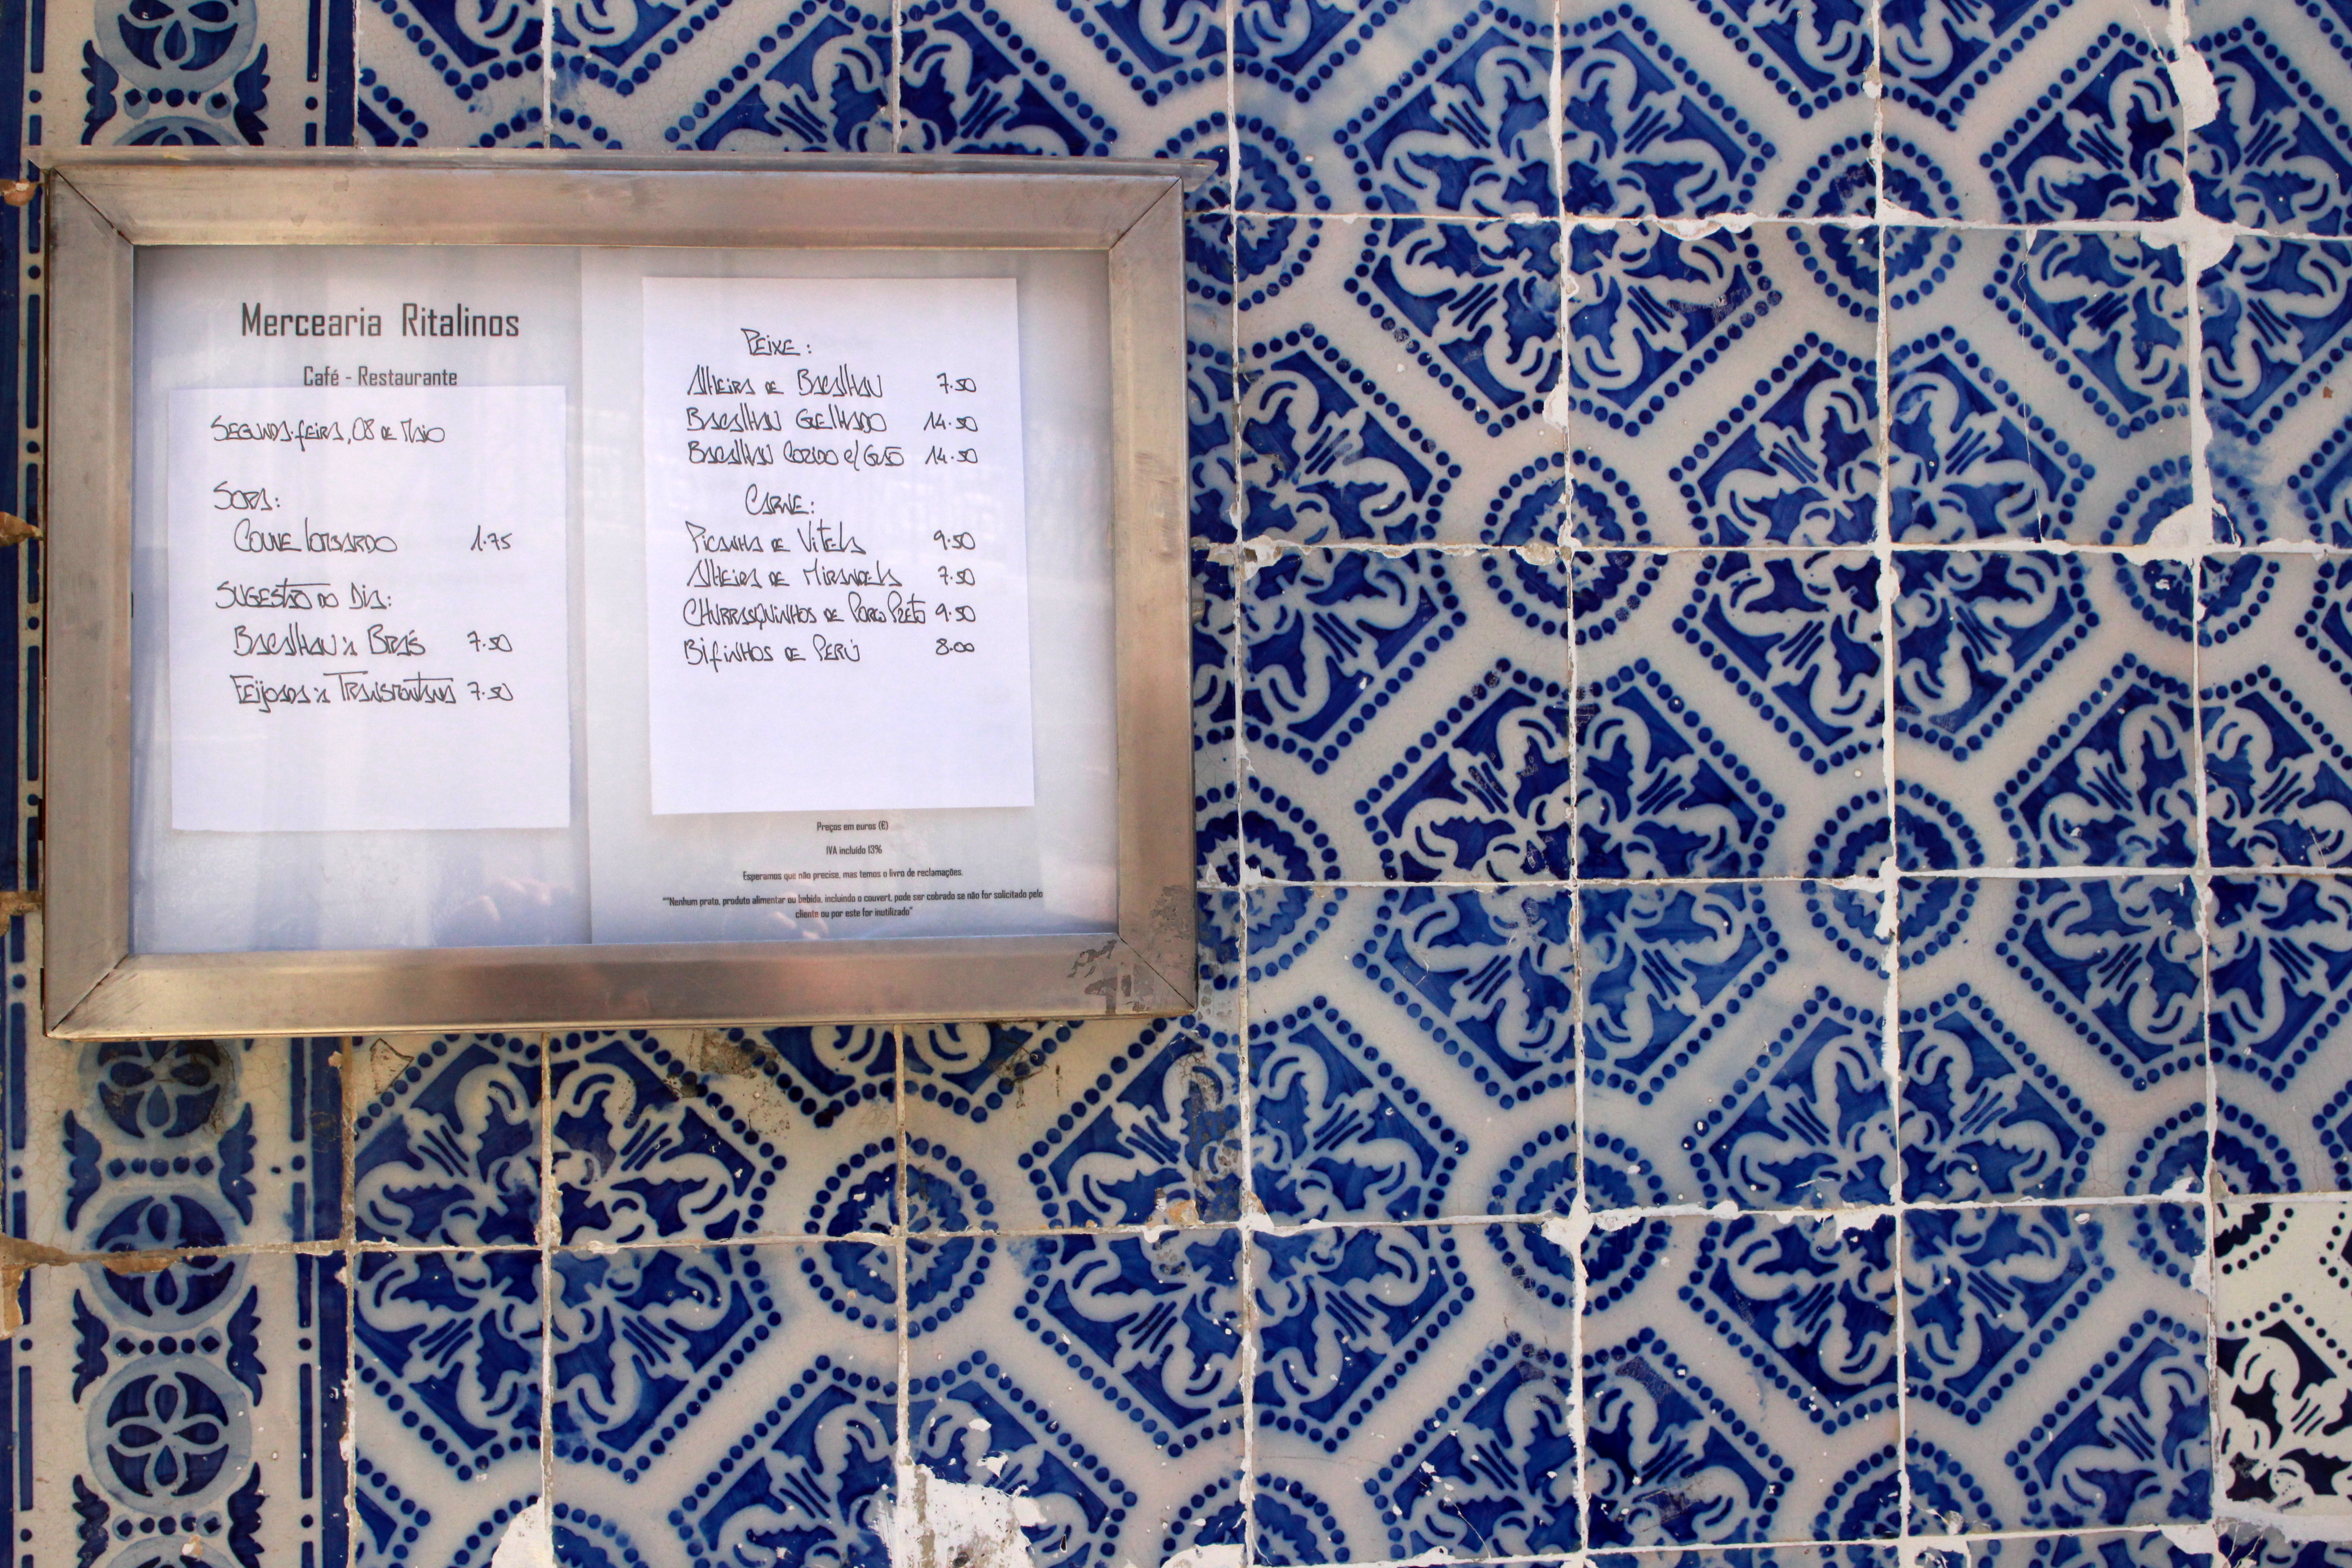 Mercearia Ritalinos
Café - Restaurante
SEGUNDA-FEIRA, 08 DE MAIO
SOPA:
COUVE LOMBARDO 1.75
SUGESTÃO DO DIA:
BACALHAU À BRÁS 7.50
FEIJOADA À TRANSMONTANA 7.50
PEIXE:
ALHEIRA DE BACALHAU 7.50
BACALHAU GRELHADO 14.50
BACALHAU COZIDO C/ GRÃO 14.50
CARNE:
PICANHA DE VITELA 9.50
ALHEIRA DE MIRANDELA 7.50
CHURRASQUINHOS DE PORCO PRETO 9.50
BIFINHOS DE PERÚ 8.00
Preços em euros (€)
IVA incluído 13%
Esperamos que não precise, mas temos o livro de reclamações.
""Nenhum prato, produto alimentar ou bebida, incluindo o couvert, pode ser cobrado se não for solicitado pelo
cliente ou por este for inutilizado"